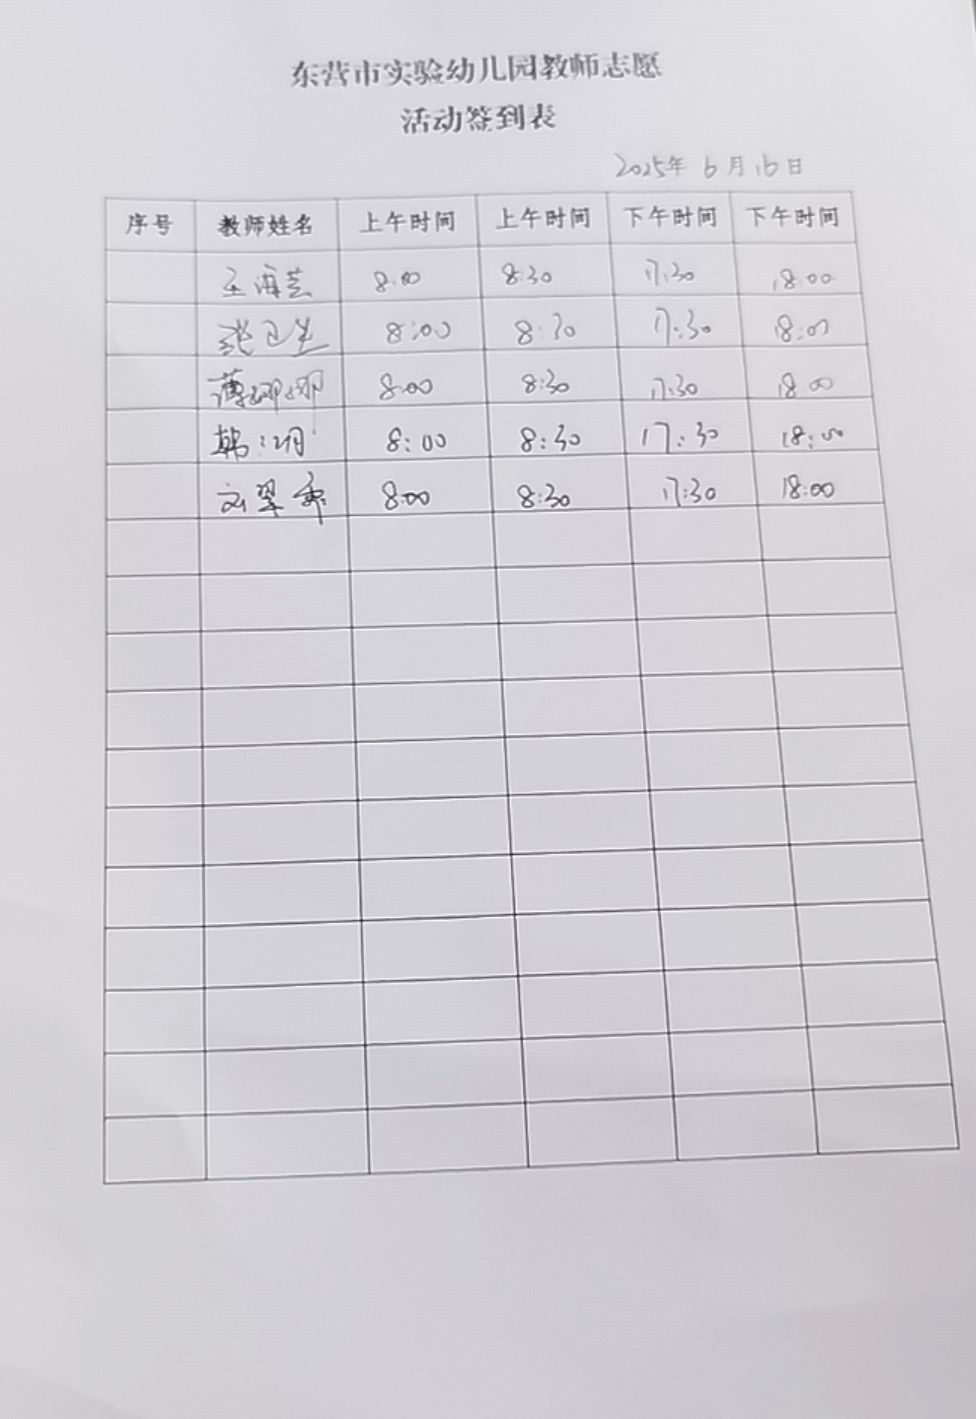 东营市实验幼儿园教师志愿
活动签到表
2025年 6月16日
序号 教师姓名 上午时间 上午时间 下午时间 下午时间
王海芸 8:00 8:30 17:30 18:00
张卫生 8:00 8:30 17:30 18:00
薄娜娜 8:00 8:30 17:30 18:00
韩 8:00 8:30 17:30 18:00
刘翠 8:00 8:30 17:30 18:00